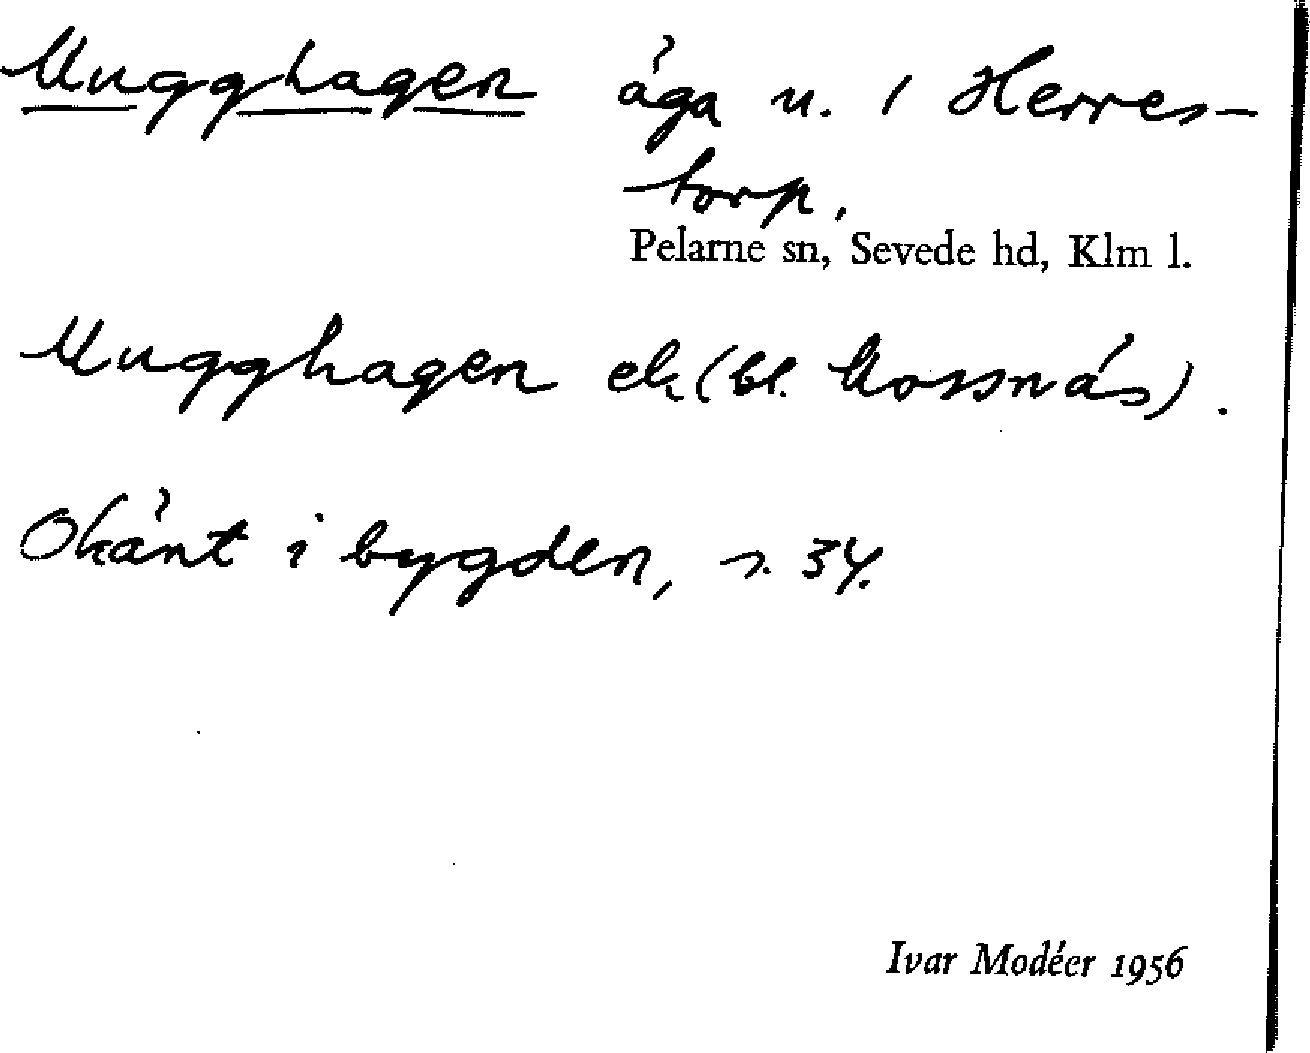 Mugghagen äga u. 1 Herres-
torp.
Pelarne sn, Sevede hd, Klm l.
Mugghagen ek (bl. Mossnäs).
Okänt i bygden, s. 34.
Ivar Modéer 1956